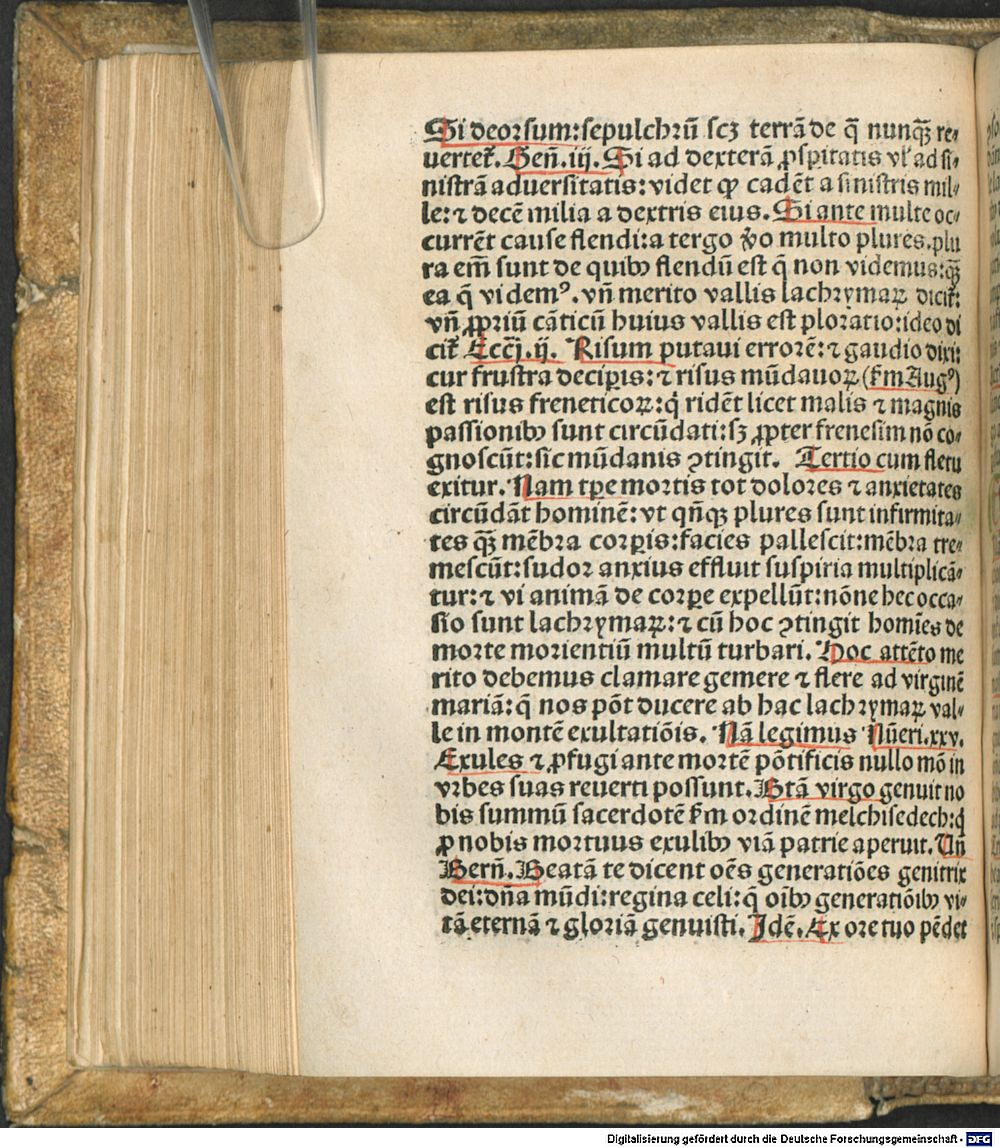 Si deorsum:sepulchrū scꝫ terrā de q̄ nunqꝫ re⸗
uerteꝉ. Geñ.iij. Si ad dexterā ꝓsꝑitatis vꝉ ad si⸗
nistrā aduersitatis:videt ꝙ cadēt a sinistris mil⸗
le:⁊ decē milia a dextris eius. Si ante multe oc⸗
currēt cause flendi:a tergo ꝟo multo plures.plu
ra em̄ sunt de quibꝰ flendū est q̄ non videmus:qꝫ
ea q̄ videmꝰ. vñ merito vallis lachrymaꝝ dicit̄:
vñ ꝓpriū cāticū huius vallis est ploratio:ideo di
cit̄ Ecc̄j.ij. Risum putaui errorē:⁊ gaudio dixi:
cur frustra deciꝑis:⁊ risus mūdanoꝝ (ẜm Augꝰ)
est risus freneticoꝝ:q̇ ridēt licet malis ⁊ magnis
passionibꝰ sunt circūdati:sꝫ ꝓpter frenesim nō co⸗
gnoscūt:sic mūdanis ꝯtingit. Tertio cum fletu
exitur. Nam tꝑe mortis tot dolores ⁊ anxietates
circūdāt hominē:vt qñqꝫ plures sunt infirmita⸗
tes qꝫ mēbra corꝑis:facies pallescit:mēbra tre⸗
mescūt:sudor anxius effluit suspiria multiplicā⸗
tur:⁊ vi animā de corꝑe expellūt:nōne hec occa⸗
sio sunt lachrymaꝝ:⁊ cū hoc ꝯtingit homīes de
morte morientiū multū turbari. Hoc attēto me
rito debemus clamare gemere ⁊ flere ad virginē
mariā:q̄ nos pōt ducere ab hac lachrymaꝝ val⸗
le in montē exultatiōis. Nā legimus Nūeri.xxv.
Exules ⁊ ꝓfugi ante mortē pōtificis nullo mō in
vrbes suas reuerti possunt. Btā virgo genuit no
bis summū sacerdotē ẜm ordinē melchisedech:q̇
ꝓ nobis mortuus exulibꝰ viā patrie aperuit. Uñ
Berñ. Beatā te dicent oēs generatiōes genitrix
dei:dña mūdi:regina celi:q̄ oībꝰ generatiōibꝰ vi⸗
tā eternā ⁊ gloriā genuisti. Idē. Ex ore tuo pēdet
Digitalisierung gefördert durch die Deutsche Forschungsgemeinschaft - DFG